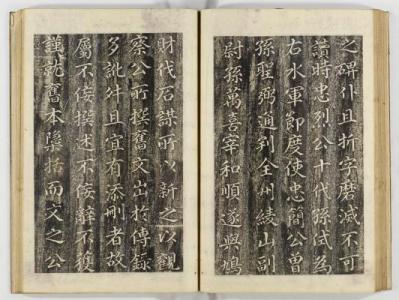 之碑仆且折字磨滅不可
讀時忠烈公十代孫栻為
右水軍節度使忠簡公曾
孫聖弼通判全州綾山副
尉孫萬喜宰和順遂與鳩
財伐石謀所以新之以觀
察公所撰舊文出於傳錄
多訛舛且宜有添刪者故
屬不佞撰述不佞辭不獲
謹就舊本檃括而文之公